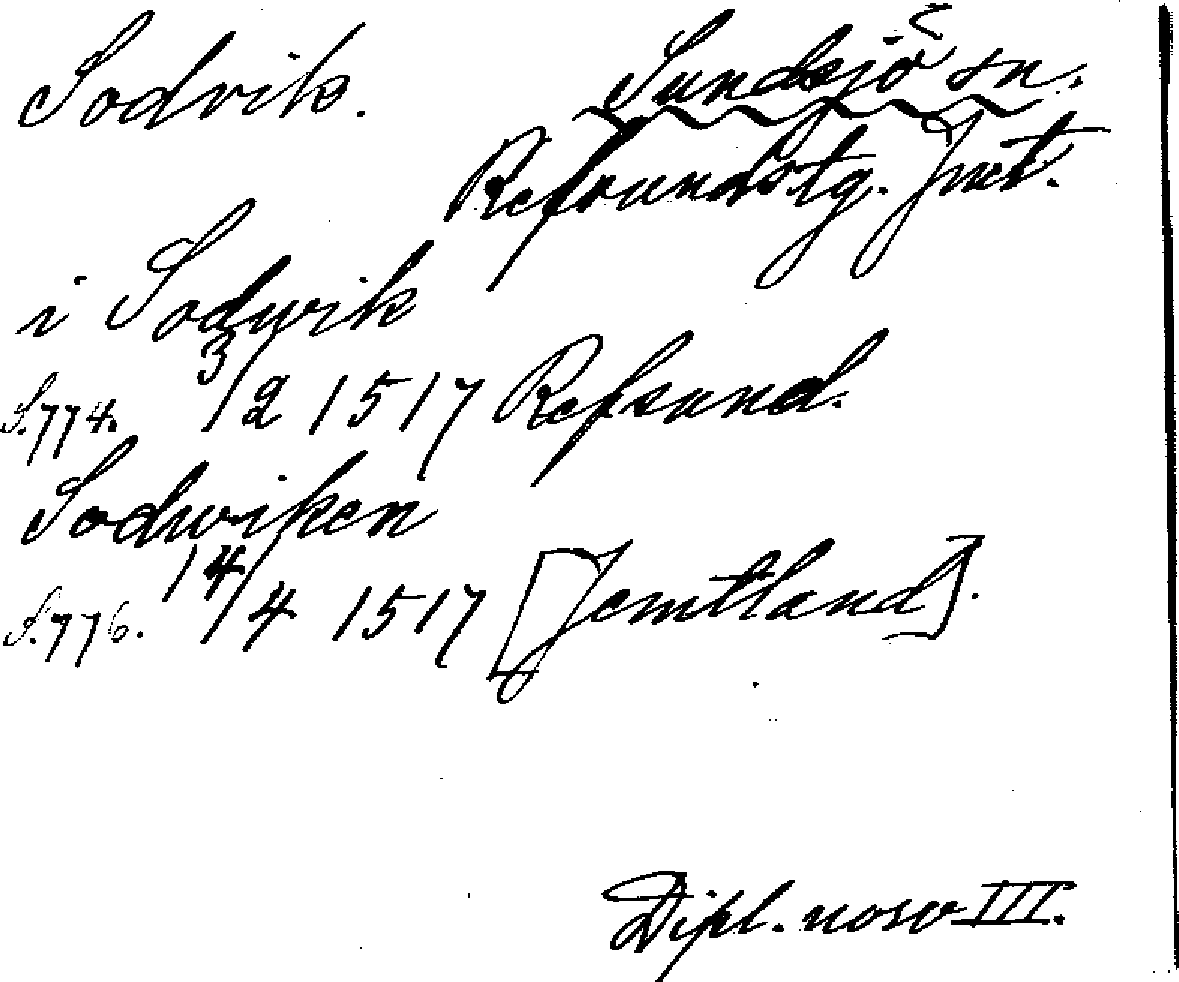 Sodvik. Sundsjö sn.
Refsunds tg. Jmt.
i Sodwik
S. 774. 3/2 1517 Refsund.
Sodwiken
S. 776. 14/4 1517 [Jemtland].
Dipl. norv III.